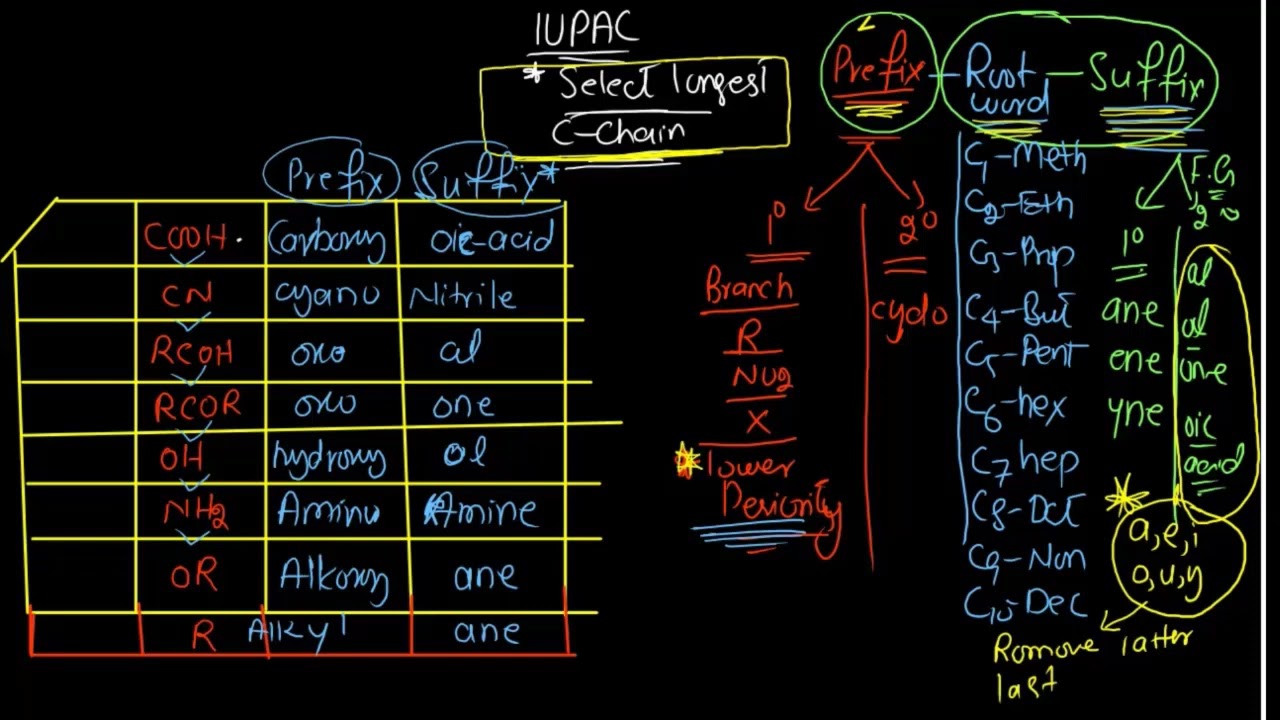 IUPAC
* Select longest
C-Chain
Prefix - Root word - Suffix
Prefix Suffix*
COOH Carboxy oic-acid
CN cyano Nitrile
RCOH oxo al
RCOR oxo one
OH hydroxy ol
NH2 Amino Amine
OR Alkoxy ane
R Alkyl ane
1⁰
Branch
R
NO2
X
lower
Periority
2⁰
cyclo
C1-Meth
C2-Eth
C3-Prop
C4-But
C5-Pent
C6-hex
C7 hep
C8-Oct
C9-Non
C10-Dec
1⁰
ane
ene
yne
F.G
2⁰
al
ol
one
oic
acid
a,e,i
o,u,y
Romove latter
last